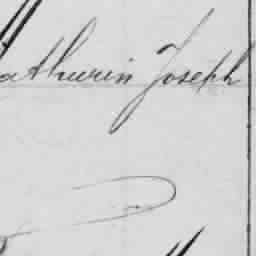 athurin Joseph